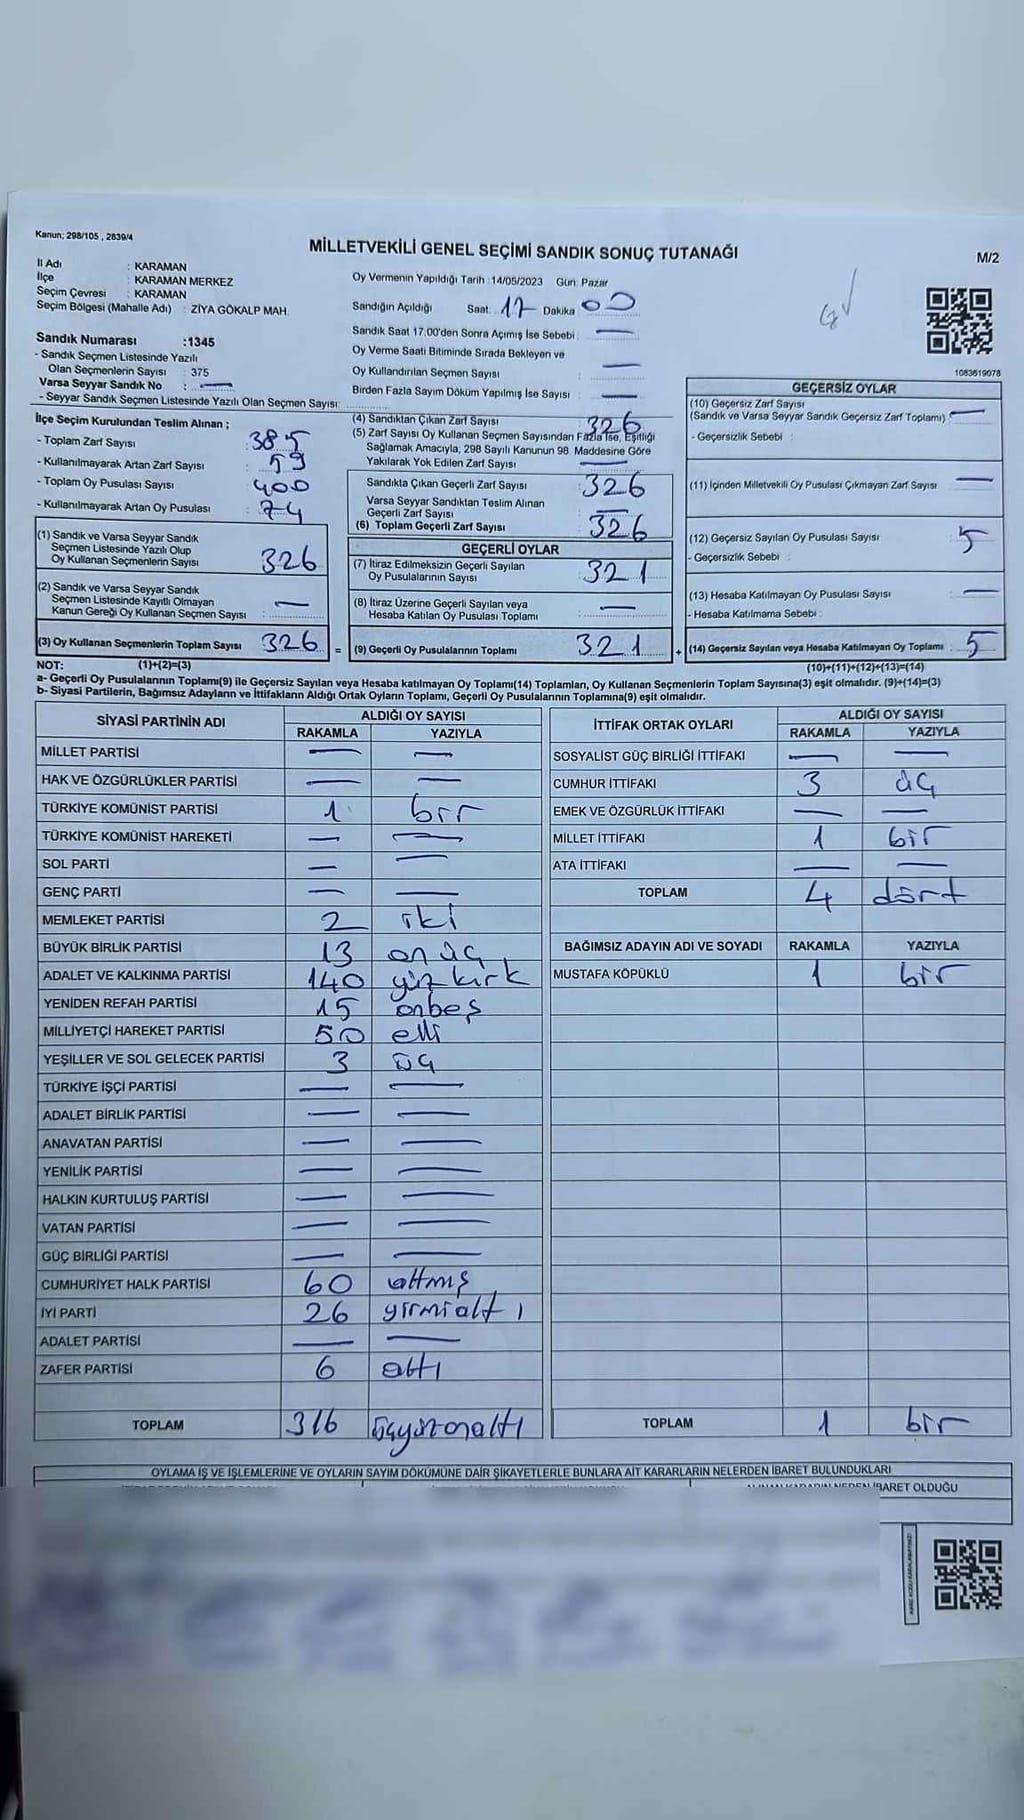 Kanun; 298/105 , 2839/4
MİLLETVEKİLİ GENEL SEÇİMİ SANDIK SONUÇ TUTANAĞI
M/2
İl Adı : KARAMAN
İlçe : KARAMAN MERKEZ
Seçim Çevresi : KARAMAN
Seçim Bölgesi (Mahalle Adı) : ZİYA GÖKALP MAH.
Sandık Numarası :1345
- Sandık Seçmen Listesinde Yazılı
Olan Seçmenlerin Sayısı : 375
Varsa Seyyar Sandık No : —
- Seyyar Sandık Seçmen Listesinde Yazılı Olan Seçmen Sayısı:
Oy Vermenin Yapıldığı Tarih :14/05/2023 Gün: Pazar
Sandığın Açıldığı Saat: 17 Dakika 00
Sandık Saat 17.00'den Sonra Açımış İse Sebebi : —
Oy Verme Saati Bitiminde Sırada Bekleyen ve
Oy Kullandırılan Seçmen Sayısı : —
Birden Fazla Sayım Döküm Yapılmış İse Sayısı : —
1083619078
İlçe Seçim Kurulundan Teslim Alınan ;
- Toplam Zarf Sayısı : 385
- Kullanılmayarak Artan Zarf Sayısı : 59
- Toplam Oy Pusulası Sayısı : 400
- Kullanılmayarak Artan Oy Pusulası : 74
(1) Sandık ve Varsa Seyyar Sandık
Seçmen Listesinde Yazılı Olup
Oy Kullanan Seçmenlerin Sayısı : 326
(2) Sandık ve Varsa Seyyar Sandık
Seçmen Listesinde Kayıtlı Olmayan
Kanun Gereği Oy Kullanan Seçmen Sayısı : —
(3) Oy Kullanan Seçmenlerin Toplam Sayısı : 326 =
(4) Sandıktan Çıkan Zarf Sayısı : 326
(5) Zarf Sayısı Oy Kullanan Seçmen Sayısından Fazla İse, Eşitliği
Sağlamak Amacıyla; 298 Sayılı Kanunun 98. Maddesine Göre
Yakılarak Yok Edilen Zarf Sayısı : —
Sandıkta Çıkan Geçerli Zarf Sayısı : 326
Varsa Seyyar Sandıktan Teslim Alınan
Geçerli Zarf Sayısı : —
(6) Toplam Geçerli Zarf Sayısı : 326
GEÇERLİ OYLAR
(7) İtiraz Edilmeksizin Geçerli Sayılan
Oy Pusulalarının Sayısı : 321
(8) İtiraz Üzerine Geçerli Sayılan veya
Hesaba Katılan Oy Pusulası Toplamı : —
(9) Geçerli Oy Pusulalarının Toplamı : 321 +
GEÇERSİZ OYLAR
(10) Geçersiz Zarf Sayısı
(Sandık ve Varsa Seyyar Sandık Geçersiz Zarf Toplamı) : —
- Geçersizlik Sebebi :
(11) İçinden Milletvekili Oy Pusulası Çıkmayan Zarf Sayısı : —
(12) Geçersiz Sayılan Oy Pusulası Sayısı : 5
- Geçersizlik Sebebi :
(13) Hesaba Katılmayan Oy Pusulası Sayısı : —
- Hesaba Katılmama Sebebi :
(14) Geçersiz Sayılan veya Hesaba Katılmayan Oy Toplamı : 5
NOT: (1)+(2)=(3)
(10)+(11)+(12)+(13)=(14)
a- Geçerli Oy Pusulalarının Toplamı(9) ile Geçersiz Sayılan veya Hesaba Katılmayan Oy Toplamı(14) Toplamları, Oy Kullanan Seçmenlerin Toplam Sayısına(3) eşit olmalıdır. (9)+(14)=(3)
b- Siyasi Partilerin, Bağımsız Adayların ve İttifakların Aldığı Ortak Oyların Toplamı, Geçerli Oy Pusulalarının Toplamına(9) eşit olmalıdır.
SİYASİ PARTİNİN ADI ALDIĞI OY SAYISI
RAKAMLA YAZIYLA
MİLLET PARTİSİ — —
HAK VE ÖZGÜRLÜKLER PARTİSİ — —
TÜRKİYE KOMÜNİST PARTİSİ 1 bir
TÜRKİYE KOMÜNİST HAREKETİ — —
SOL PARTİ — —
GENÇ PARTİ — —
MEMLEKET PARTİSİ 2 iki
BÜYÜK BİRLİK PARTİSİ 13 on üç
ADALET VE KALKINMA PARTİSİ 140 yüz kırk
YENİDEN REFAH PARTİSİ 15 onbeş
MİLLİYETÇİ HAREKET PARTİSİ 50 elli
YEŞİLLER VE SOL GELECEK PARTİSİ 3 üç
TÜRKİYE İŞÇİ PARTİSİ — —
ADALET BİRLİK PARTİSİ — —
ANAVATAN PARTİSİ — —
YENİLİK PARTİSİ — —
HALKIN KURTULUŞ PARTİSİ — —
VATAN PARTİSİ — —
GÜÇ BİRLİĞİ PARTİSİ — —
CUMHURİYET HALK PARTİSİ 60 altmış
İYİ PARTİ 26 yirmialtı
ADALET PARTİSİ — —
ZAFER PARTİSİ 6 altı
TOPLAM 316 üçyüzonaltı
İTTİFAK ORTAK OYLARI ALDIĞI OY SAYISI
RAKAMLA YAZIYLA
SOSYALİST GÜÇ BİRLİĞİ İTTİFAKI — —
CUMHUR İTTİFAKI 3 üç
EMEK VE ÖZGÜRLÜK İTTİFAKI — —
MİLLET İTTİFAKI 1 bir
ATA İTTİFAKI — —
TOPLAM 4 dört
BAĞIMSIZ ADAYIN ADI VE SOYADI RAKAMLA YAZIYLA
MUSTAFA KÖPÜKLÜ 1 bir
TOPLAM 1 bir
OYLAMA İŞ VE İŞLEMLERİNE VE OYLARIN SAYIM DÖKÜMÜNE DAİR ŞİKAYETLERLE BUNLARA AİT KARARLARIN NELERDEN İBARET BULUNDUKLARI
İBARET OLDUĞU